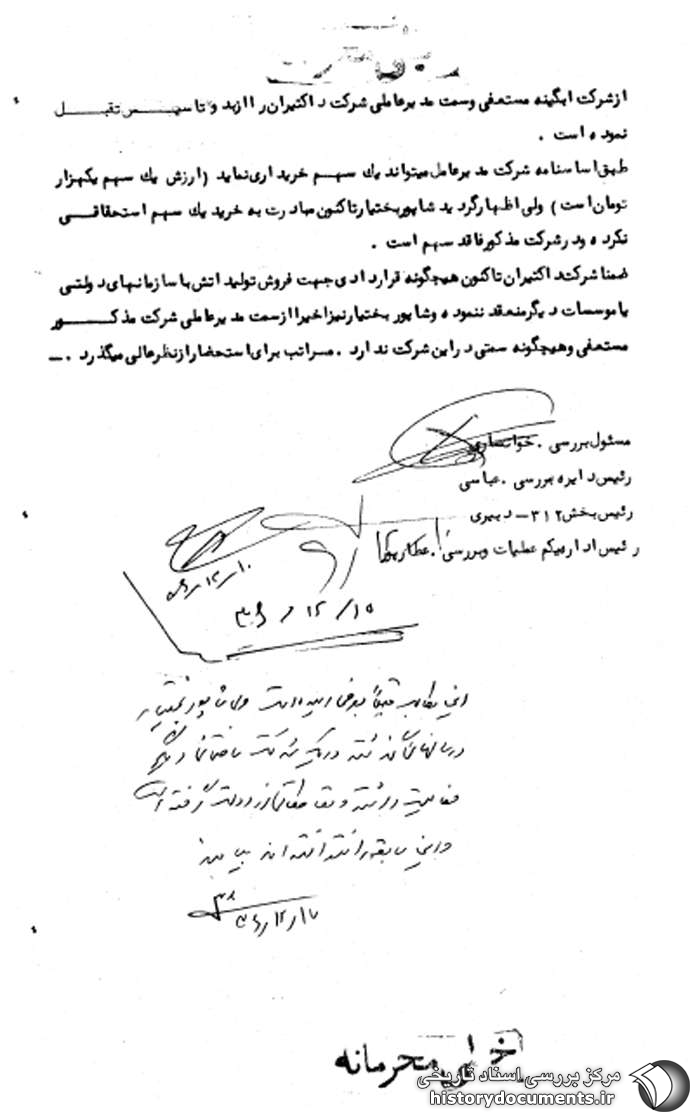 ازشرکت ابگینه مستعفی وسمت مدیرعاملی شرکت داکتیران را ازبدو تاسیس تقبل
نموده است .
طبق اساسنامه شرکت مدیرعامل میتواند یك سهم خریداری نماید (ارزش یك سهم یکهزار
تومان است) ولی اظهارگردید شاپوربختیارتاکنون مبادرت به خرید یك سهم استحقاقی
نکرده ودرشرکت مذکورفاقد سهم است .
ضمنا شرکت داکتیران تاکنون هیچگونه قراردادی جهت فروش تولیداتش باسازمانهای دولتی
یاموسسات دیگرمنعقد ننموده وشاپور بختیارنیزاخیرا ازسمت مدیرعاملی شرکت مذکور
مستعفی وهیچگونه سمتی دراین شرکت ندارد . مراتب برای استحضارازنظرعالی میگذرد .-
مسئول بررسی . خوانساری
رئیس دایره بررسی . عباسی
رئیس بخش ۳۱۲ - دبیری
رئیس اداره یکم عملیات وبررسی . عطارپور
این مطالب قبلاً بعرض رسیده است ولی شاپور بختیار
در سالهای گذشته در یک شرکت ساختمانی دیگر
فعالیت داشته و مقاطعاتی از دولت گرفته است
خیلی محرمانه
مرکز بررسی اسناد تاریخی
historydocuments.ir